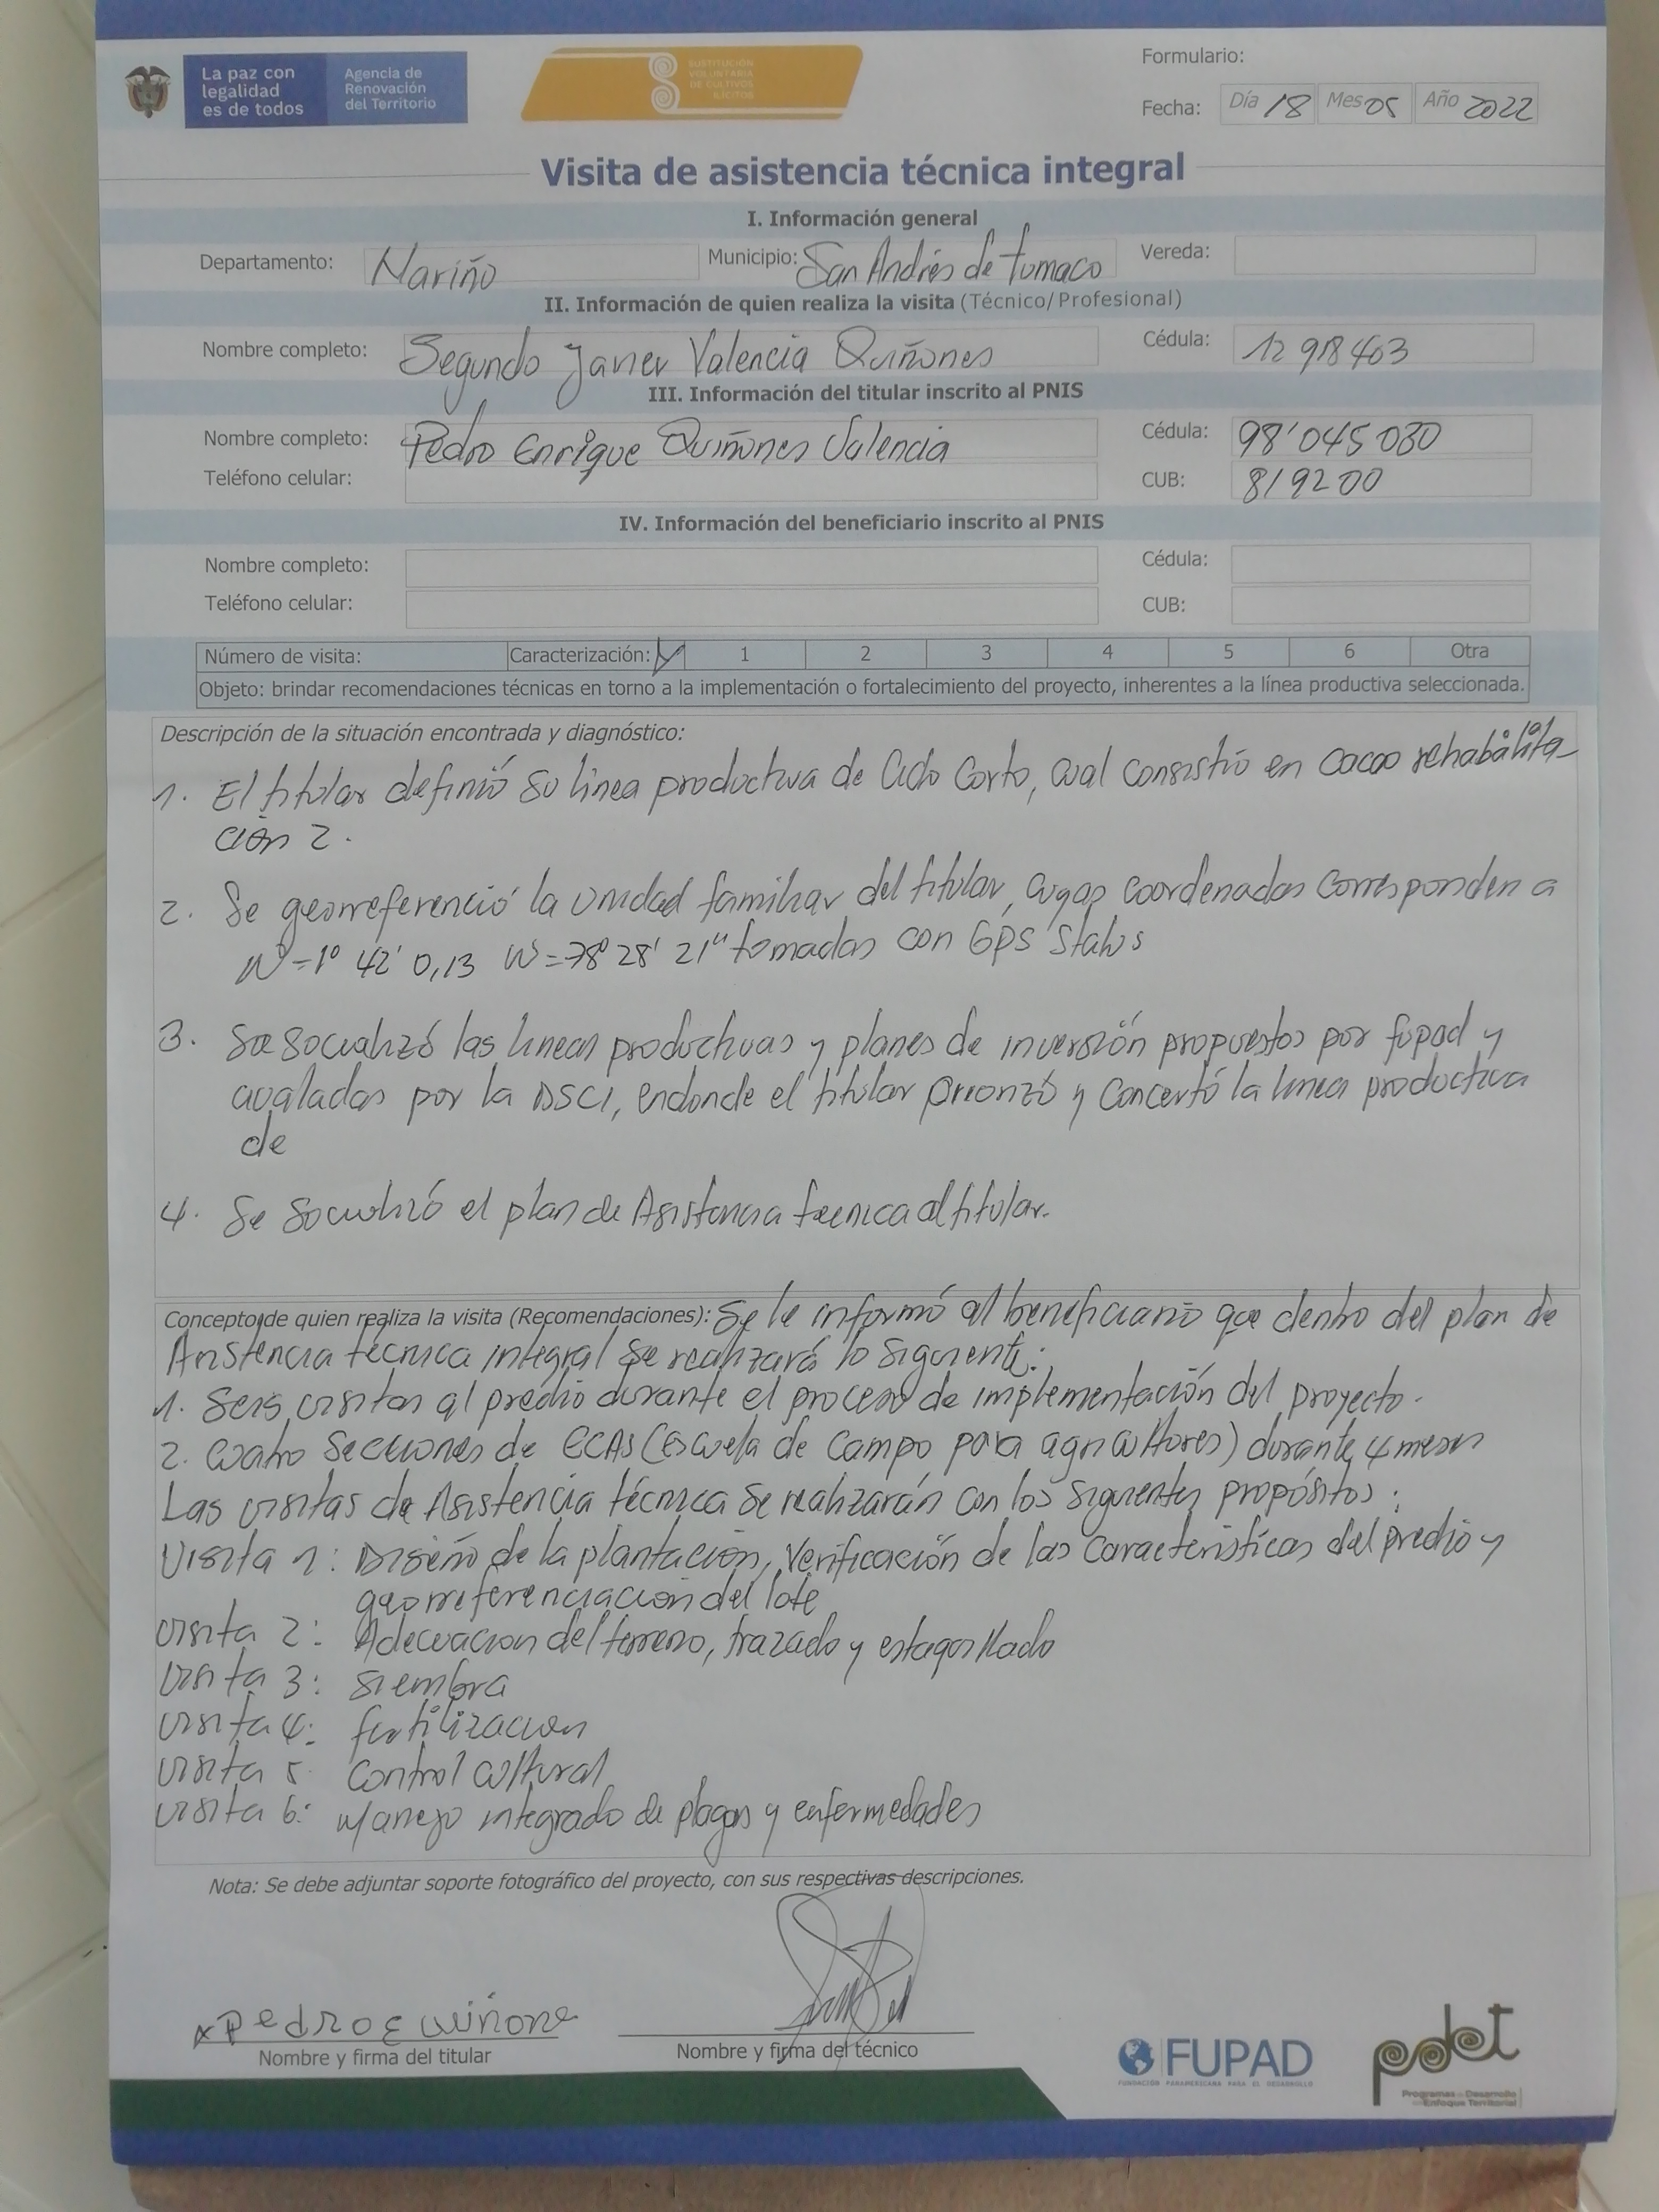 La paz con
legalidad
es de todos
Agencia de
Renovación
del Territorio
SUSTITUCIÓN
VOLUNTARIA
DE CULTIVOS
ILÍCITOS
Formulario:
Fecha: Día 18 Mes 05 Año 2022
Visita de asistencia técnica integral
I. Información general
Departamento: Nariño Municipio: San Andrés de Tumaco Vereda:
II. Información de quien realiza la visita (Técnico/Profesional)
Nombre completo: Segundo Javier Valencia Quiñones Cédula: 12 918 403
III. Información del titular inscrito al PNIS
Nombre completo: Pedro Enrique Quiñones Valencia Cédula: 98'045 030
Teléfono celular: CUB: 819200
IV. Información del beneficiario inscrito al PNIS
Nombre completo: Cédula:
Teléfono celular: CUB:
Número de visita: Caracterización: 1 2 3 4 5 6 Otra
Objeto: brindar recomendaciones técnicas en torno a la implementación o fortalecimiento del proyecto, inherentes a la línea productiva seleccionada.
Descripción de la situación encontrada y diagnóstico:
1. El titular definió su linea productiva de Ciclo Corto, cual consistió en cacao rehabilita
ción 2.
2. Se georreferenció la unidad familiar del titular, cuyas coordenadas corresponden a
N=1° 42' 0,13 W=78° 28' 21" tomadas con GPS Status
3. Se socializó las lineas productivas y planes de inversión propuestos por fupad y
avaladas por la DSCI, endonde el titular priorizó y concertó la linea productiva
de
4. Se socializó el plan de Asistencia tecnica al titular.
Concepto de quien realiza la visita (Recomendaciones): Se le informó al beneficiario que dentro del plan de
Asistencia técnica integral se realizará lo siguiente:
1. Seis visitas al predio durante el proceso de implementación del proyecto.
2. Cuatro Secciones de ECAS (Escuela de Campo para agricultores) durante 4 meses
Las visitas de Asistencia técnica se realizarán con los siguientes propósitos:
Visita 1: Diseño de la plantación, Verificación de las características del predio y
georreferenciacion del lote
visita 2: Adecuacion del terreno, trazado y estaquillado
visita 3: Siembra
visita 4: fertilizacion
visita 5 Control cultural
visita 6: Manejo integrado de plagas y enfermedades
Nota: Se debe adjuntar soporte fotográfico del proyecto, con sus respectivas descripciones.
x Pedro E uiñone
Nombre y firma del titular
Nombre y firma del técnico
FUPAD
FUNDACIÓN PANAMERICANA PARA EL DESARROLLO
pdet
Programas de Desarrollo
con Enfoque Territorial